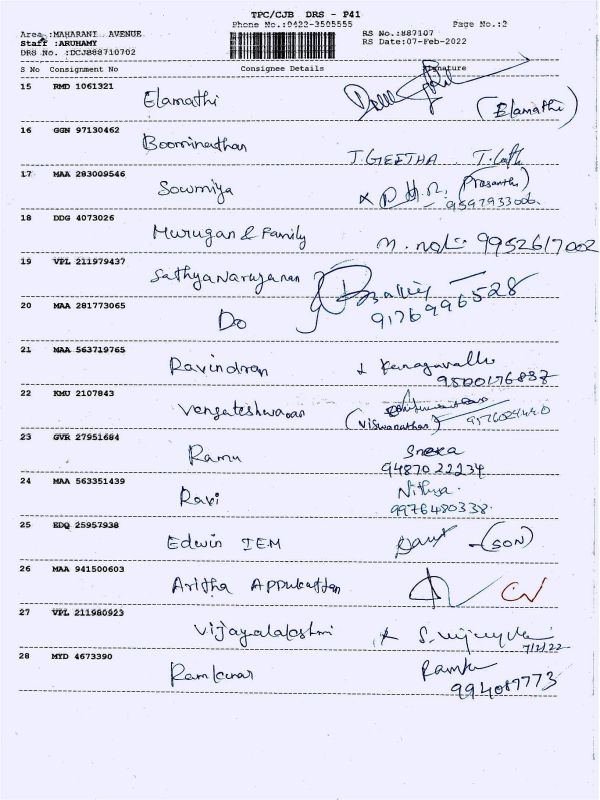 TPC/CJB DRS - P41
Phone No.:0422-3505555 Page No.:2
Area :MAHARANI AVENUE RS No.:887107
Staff :ARUHAMY RS Date:07-Feb-2022
DRS No. :DCJB88710702
S No Consignment No Consignee Details Signature
15 RMD 1061321 Elamathi (Elamathi)
16 GGN 97130462 Boominathan J. GEETHA
17 MAA 283009546 Sowmiya (Prasanth) 9597933006
18 DDG 4073026 Murugan & Family 9952617002
19 VPL 211979437 Sathyanarayanan
20 MAA 281773065 Do 9176996528
21 MAA 563719765 Ravindran Kanagavalli
9500176837
22 KMU 2107843 Vengateshwaran
(Viswanathan)
23 GVR 27951684 Ramu Sneka
9487022234
24 MAA 563351439 Ravi Nithya.
9976480338.
25 EDQ 25957938 Edwin IEM (SON)
26 MAA 941500603 Aritha Appukuttan
27 VPL 211980923 Vijayalakshmi
7/2/22
28 MYD 4673390 Ramkumar
994089773